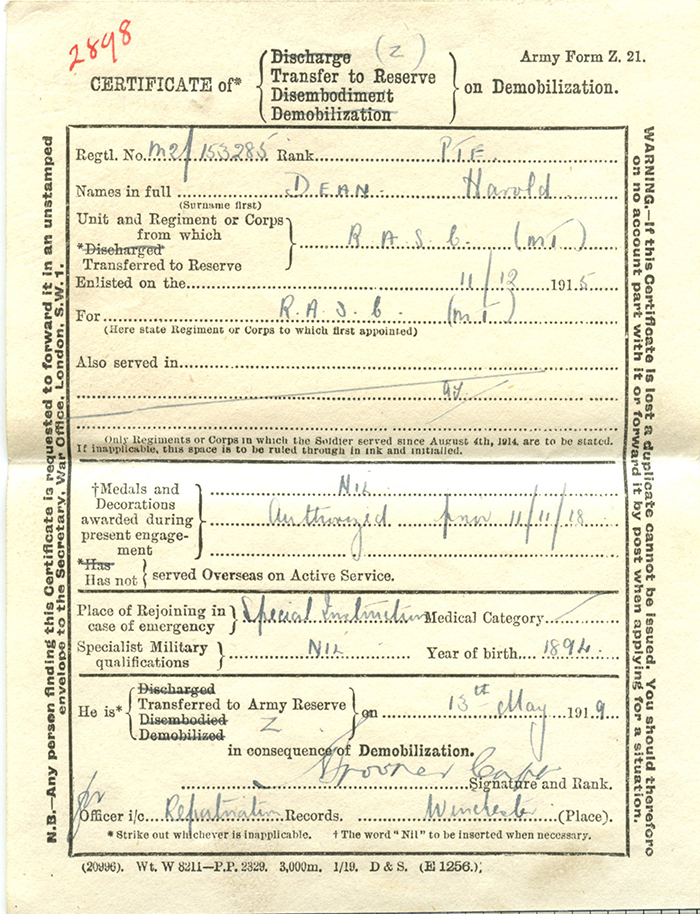 2898
Discharge (Z)
Army Form Z. 21.
CERTIFICATE of* Transfer to Reserve on Demobilization.
Disembodiment
Demobilization
Regtl. No. M2/153285 Rank PTE.
Names in full DEAN. Harold
(Surname first)
Unit and Regiment or Corps
from which R.A.S.C. (MT)
*Discharged
Transferred to Reserve
Enlisted on the 11/12 1915
For R.A.S.C. (MT)
(Here state Regiment or Corps to which first appointed)
Also served in
Only Regiments or Corps in which the Soldier served since August 4th, 1914, are to be stated.
If inapplicable, this space is to be ruled through in ink and initialled.
†Medals and Nil
Decorations
awarded during Authorized prior 11/11/18
present engage-
ment
*Has
Has not served Overseas on Active Service.
Place of Rejoining in Special Instruction Medical Category
case of emergency
Specialist Military NIL Year of birth 1894.
qualifications
Discharged
He is* Transferred to Army Reserve on 13th May 1919
Disembodied Z
Demobilized
in consequence of Demobilization.
Spooner Capt
Signature and Rank.
for
Officer i/c Repatriation Records. Winchester (Place).
* Strike out whichever is inapplicable. † The word "Nil" to be inserted when necessary.
(20996). Wt. W 8211—P.P. 2329. 3,000m. 1/19. D & S. (E 1256.)
N.B.—Any person finding this Certificate is requested to forward it in an unstamped
envelope to the Secretary, War Office, London, S.W. 1.
WARNING.—If this Certificate is lost a duplicate cannot be issued. You should therefore
on no account part with it or forward it by post when applying for a situation.